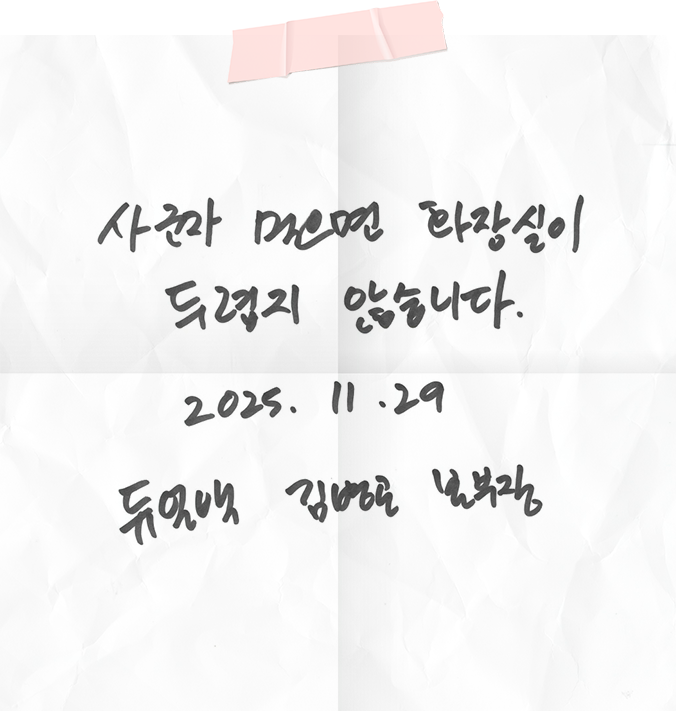 사군자 먹으면 화장실이
두렵지 않습니다.
2025. 11 .29
듀얼백 김병호 본부장